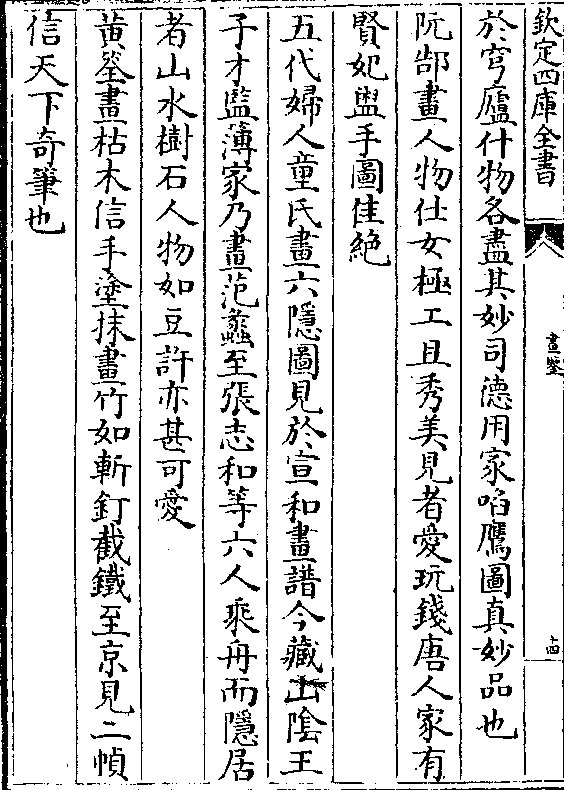 欽定四庫全書
畫鑒
十四
於穹廬什物各盡其妙司德用家啗鷹圖真妙品也
阮郜畫人物仕女極工且秀美見者愛玩錢唐人家有
賢妃盥手圖佳絶
五代婦人童氏畫六隱圖見於宣和畫譜今藏山隂王
子才監簿家乃畫范蠡至張志和等六人乘舟而隱居
者山水樹石人物如豆許亦甚可愛
黄筌畫枯木信手塗抹畫竹如斬釘截鐵至京見二幀
信天下奇筆也